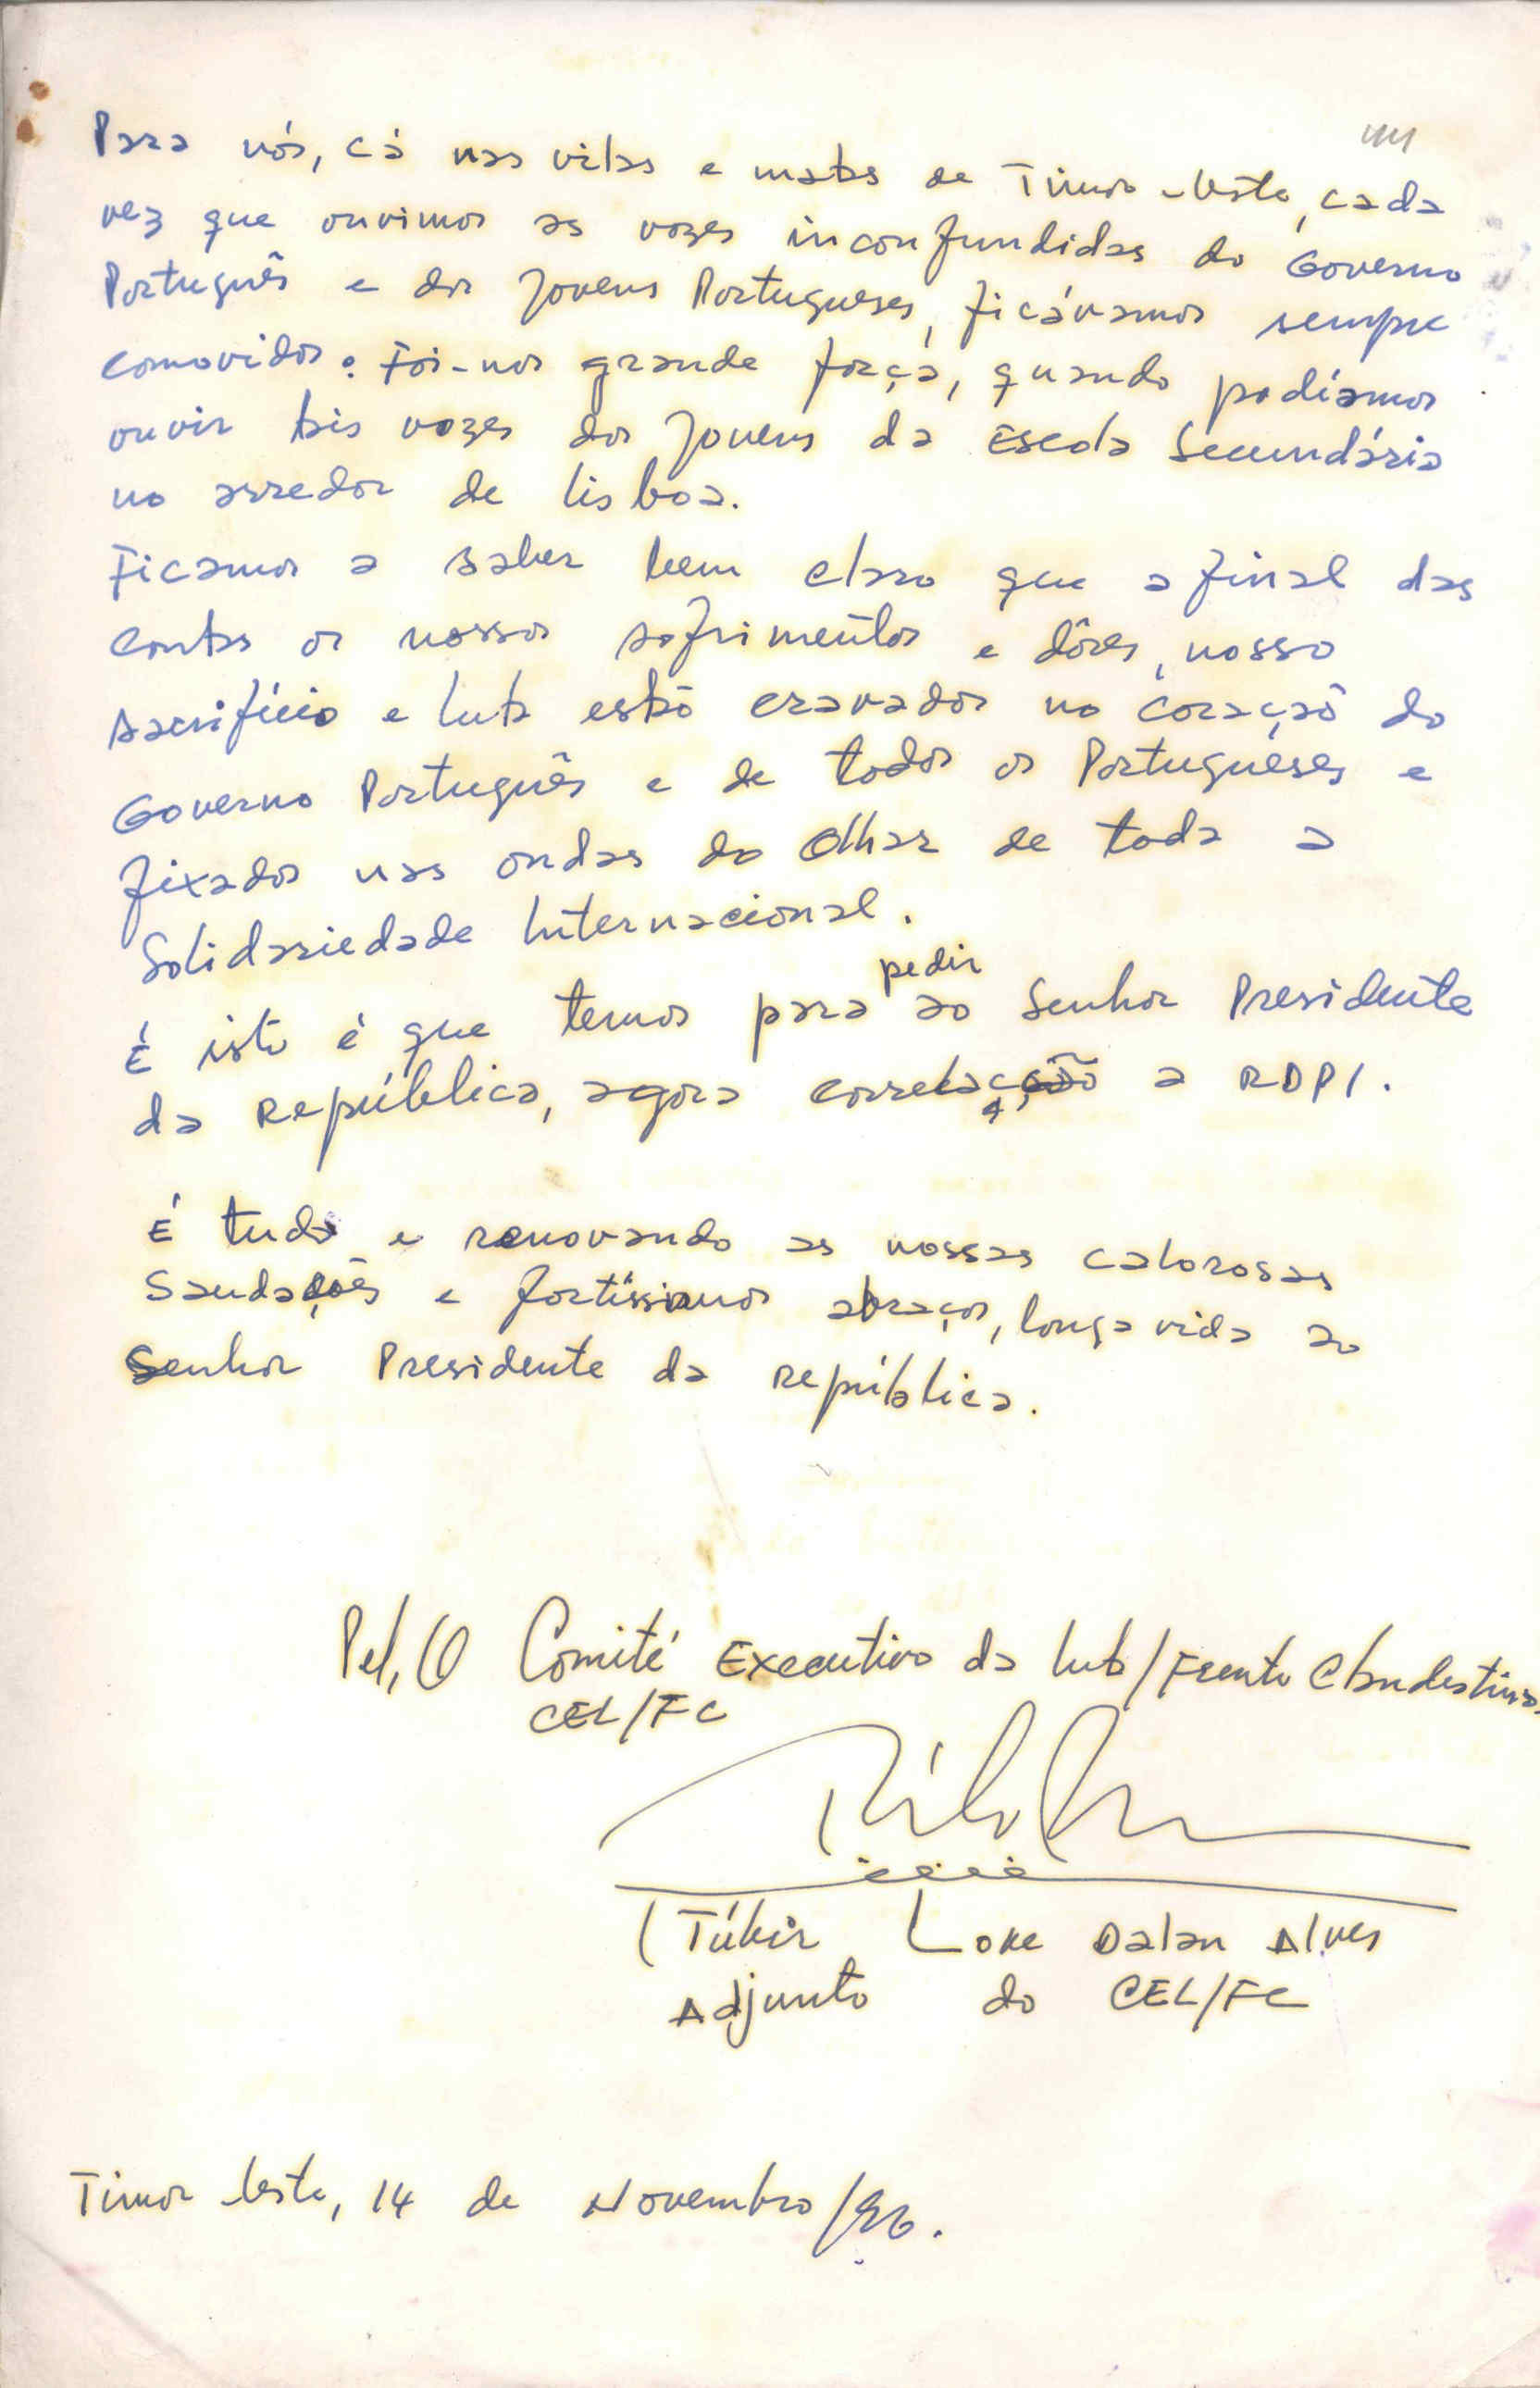 Para nós, cá nas vilas e matas de Timor-Leste, cada
vez que ouvimos as vozes inconfundidas do Governo
Português e dos Jovens Portugueses, ficávamos sempre
comovidos. Foi-nos grande força, quando podíamos
ouvir tais vozes dos Jovens da Escola Secundária
no arredor de Lisboa.
Ficamos a saber bem claro que afinal das
contas os nossos sofrimentos e dôres, nosso
sacrifício e luta estão cravados no coração do
Governo Português e de todos os Portugueses e
fixados nas ondas do Olhar de toda a
Solidariedade Internacional.
É isto é que temos para pedir ao Senhor Presidente
da República, agora a RDPI.
É tudo e renovando as nossas calorosas
Saudações e fortíssimos abraços, longa vida ao
Senhor Presidente da república.
Pel, O Comité Executivo da Luta/Frente Clandestina
CEL/FC
(Túbir Loke Dalan Alves
Adjunto do CEL/FC
Timor Leste, 14 de Novembro/96.